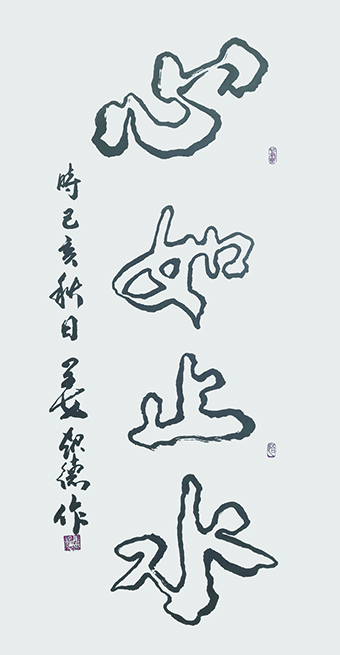 心如止水
時己亥秋日姜
德作